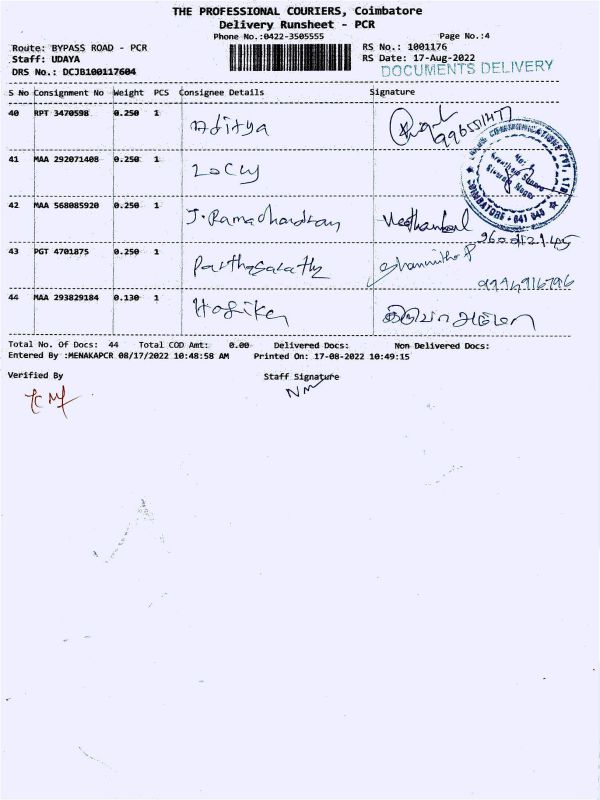 THE PROFESSIONAL COURIERS, Coimbatore
Delivery Runsheet - PCR
Phone No.:0422-3505555 Page No.:4
Route: BYPASS ROAD - PCR RS No.: 1001176
Staff: UDAYA RS Date: 17-Aug-2022
DRS No.: DCJB100117604 DOCUMENTS DELIVERY
S No Consignment No Weight PCS Consignee Details Signature
40 RPT 3470598 0.250 1 Aditya
41 MAA 292071408 0.250 1
COMMUNICATIONS PVT. LTD
COIMBATORE - 641
42 MAA 568085920 0.250 1 J. Ramachandran
43 PGT 4701875 0.250 1 Parthasarathy Shanmitha P
44 MAA 293829184 0.130 1
Total No. Of Docs: 44 Total COD Amt: 0.00 Delivered Docs: Non Delivered Docs:
Entered By :MENAKAPCR 08/17/2022 10:48:58 AM Printed On: 17-08-2022 10:49:15
Verified By Staff Signature